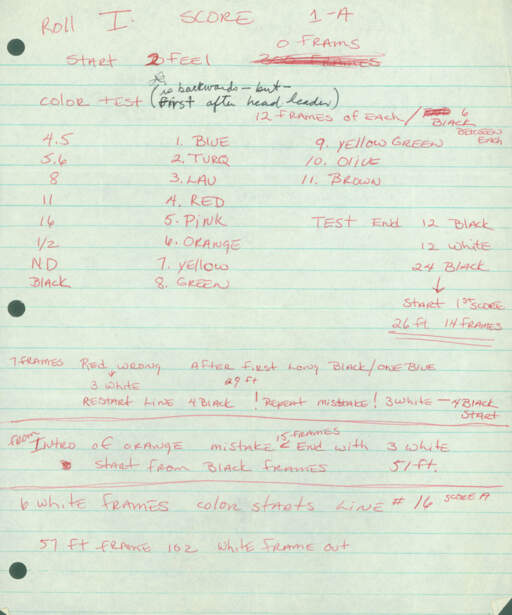 Roll I. SCORE 1-A
0 FRAMS
START 2 FEEL
(is backwards - but -
COLOR TEST first after head leader)
12 FRAMES OF EACH / 6 BLACK BETWEEN EACH
4.5 1. BLUE 9. YELLOW GREEN
5.6 2. TURQ 10. OLIVE
8 3. LAV 11. BROWN
11 4. RED
16 5. PINK TEST END 12 Black
1/2 6. ORANGE 12 white
ND 7. YELLOW 24 Black
BLACK 8. GREEN ↓
START 1ST SCORE
26 ft 14 FRAMES
7 FRAMES Red wrong After first long Black/one Blue
3 white 29 ft
RESTART LINE 4 Black ! Repeat mistake ! 3 white — 4 Black
START
from Intro of orange mistake 15 FRAMES End with 3 white
START from Black frames 51 ft.
6 white frames color starts Line # 16 SCORE A
57 ft frame 102 white frame out